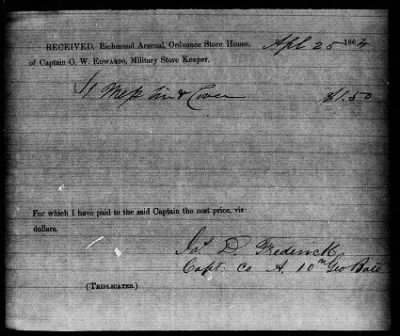 RECEIVED, Richmond Arsenal, Ordnance Store House, Apl 25 1864
of Captain O. W. Edwards, Military Store Keeper,
1 Mess tin & Cover $1.50
For which I have paid to the said Captain the cost price, viz:
dollars.
Jas. D. Frederick
Capt. Co A. 10th Geo Batt
(Triplicates.)